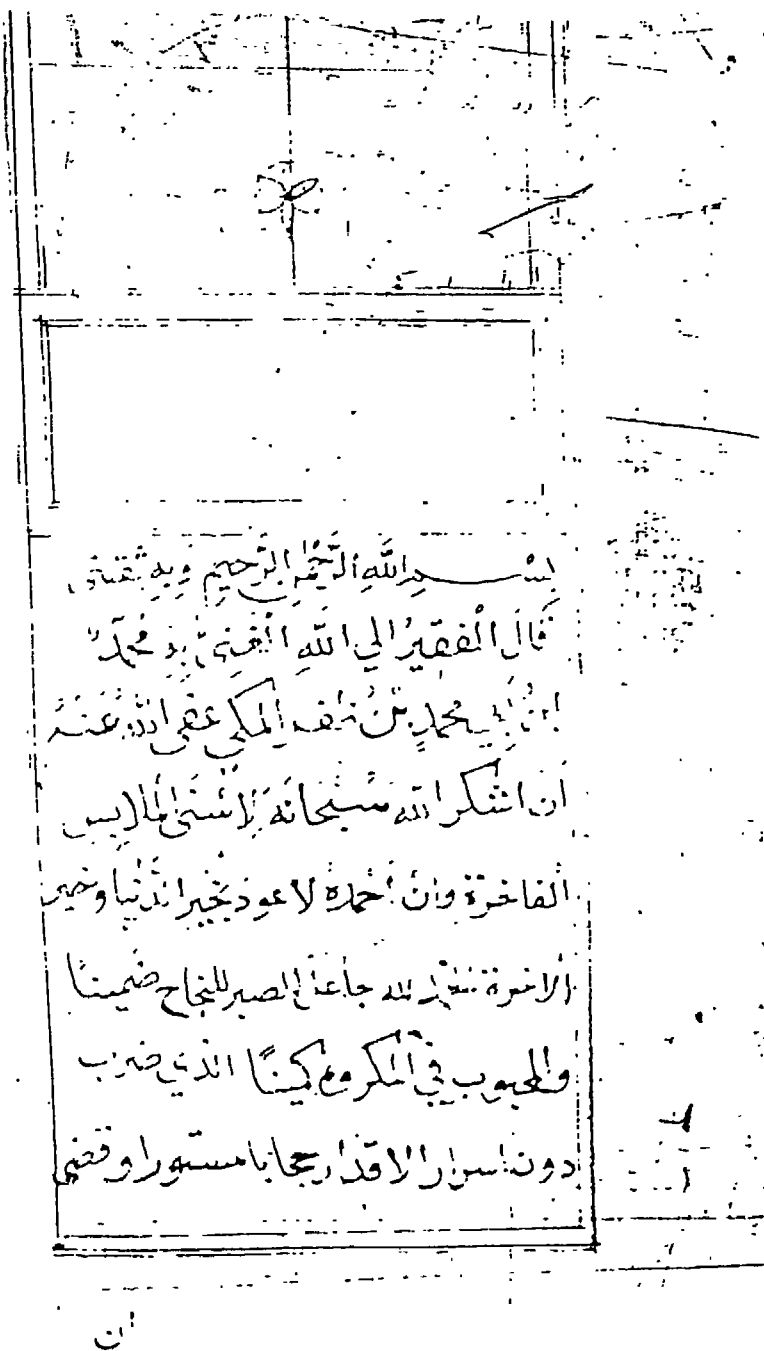 بسم اللهِ الرَّحْمٰنِ الرَّحِيمِ وَبِهِ ثِقَتِي
قَالَ الْفَقِيرُ الي اللهِ الْغَنِيِّ بِهِ مُحَمَّدُ
ابْنُ أَبِي محمدٍ بْنُ ظفر المكي عفى اللهُ عَنْهُ
ان اشكر الله سُبْحَانَهُ لأَسْنَى الملابس
الفاخرة وان أحمده لاعوذ بخير الدنيا وخير
الاخرة لله جاعل الصبر للنجاح ضمينًا
والمحبوب في المكروه كمينًا الذي ضرب
دون اسرار الاقدار حجابا مستورا وقضى
ان